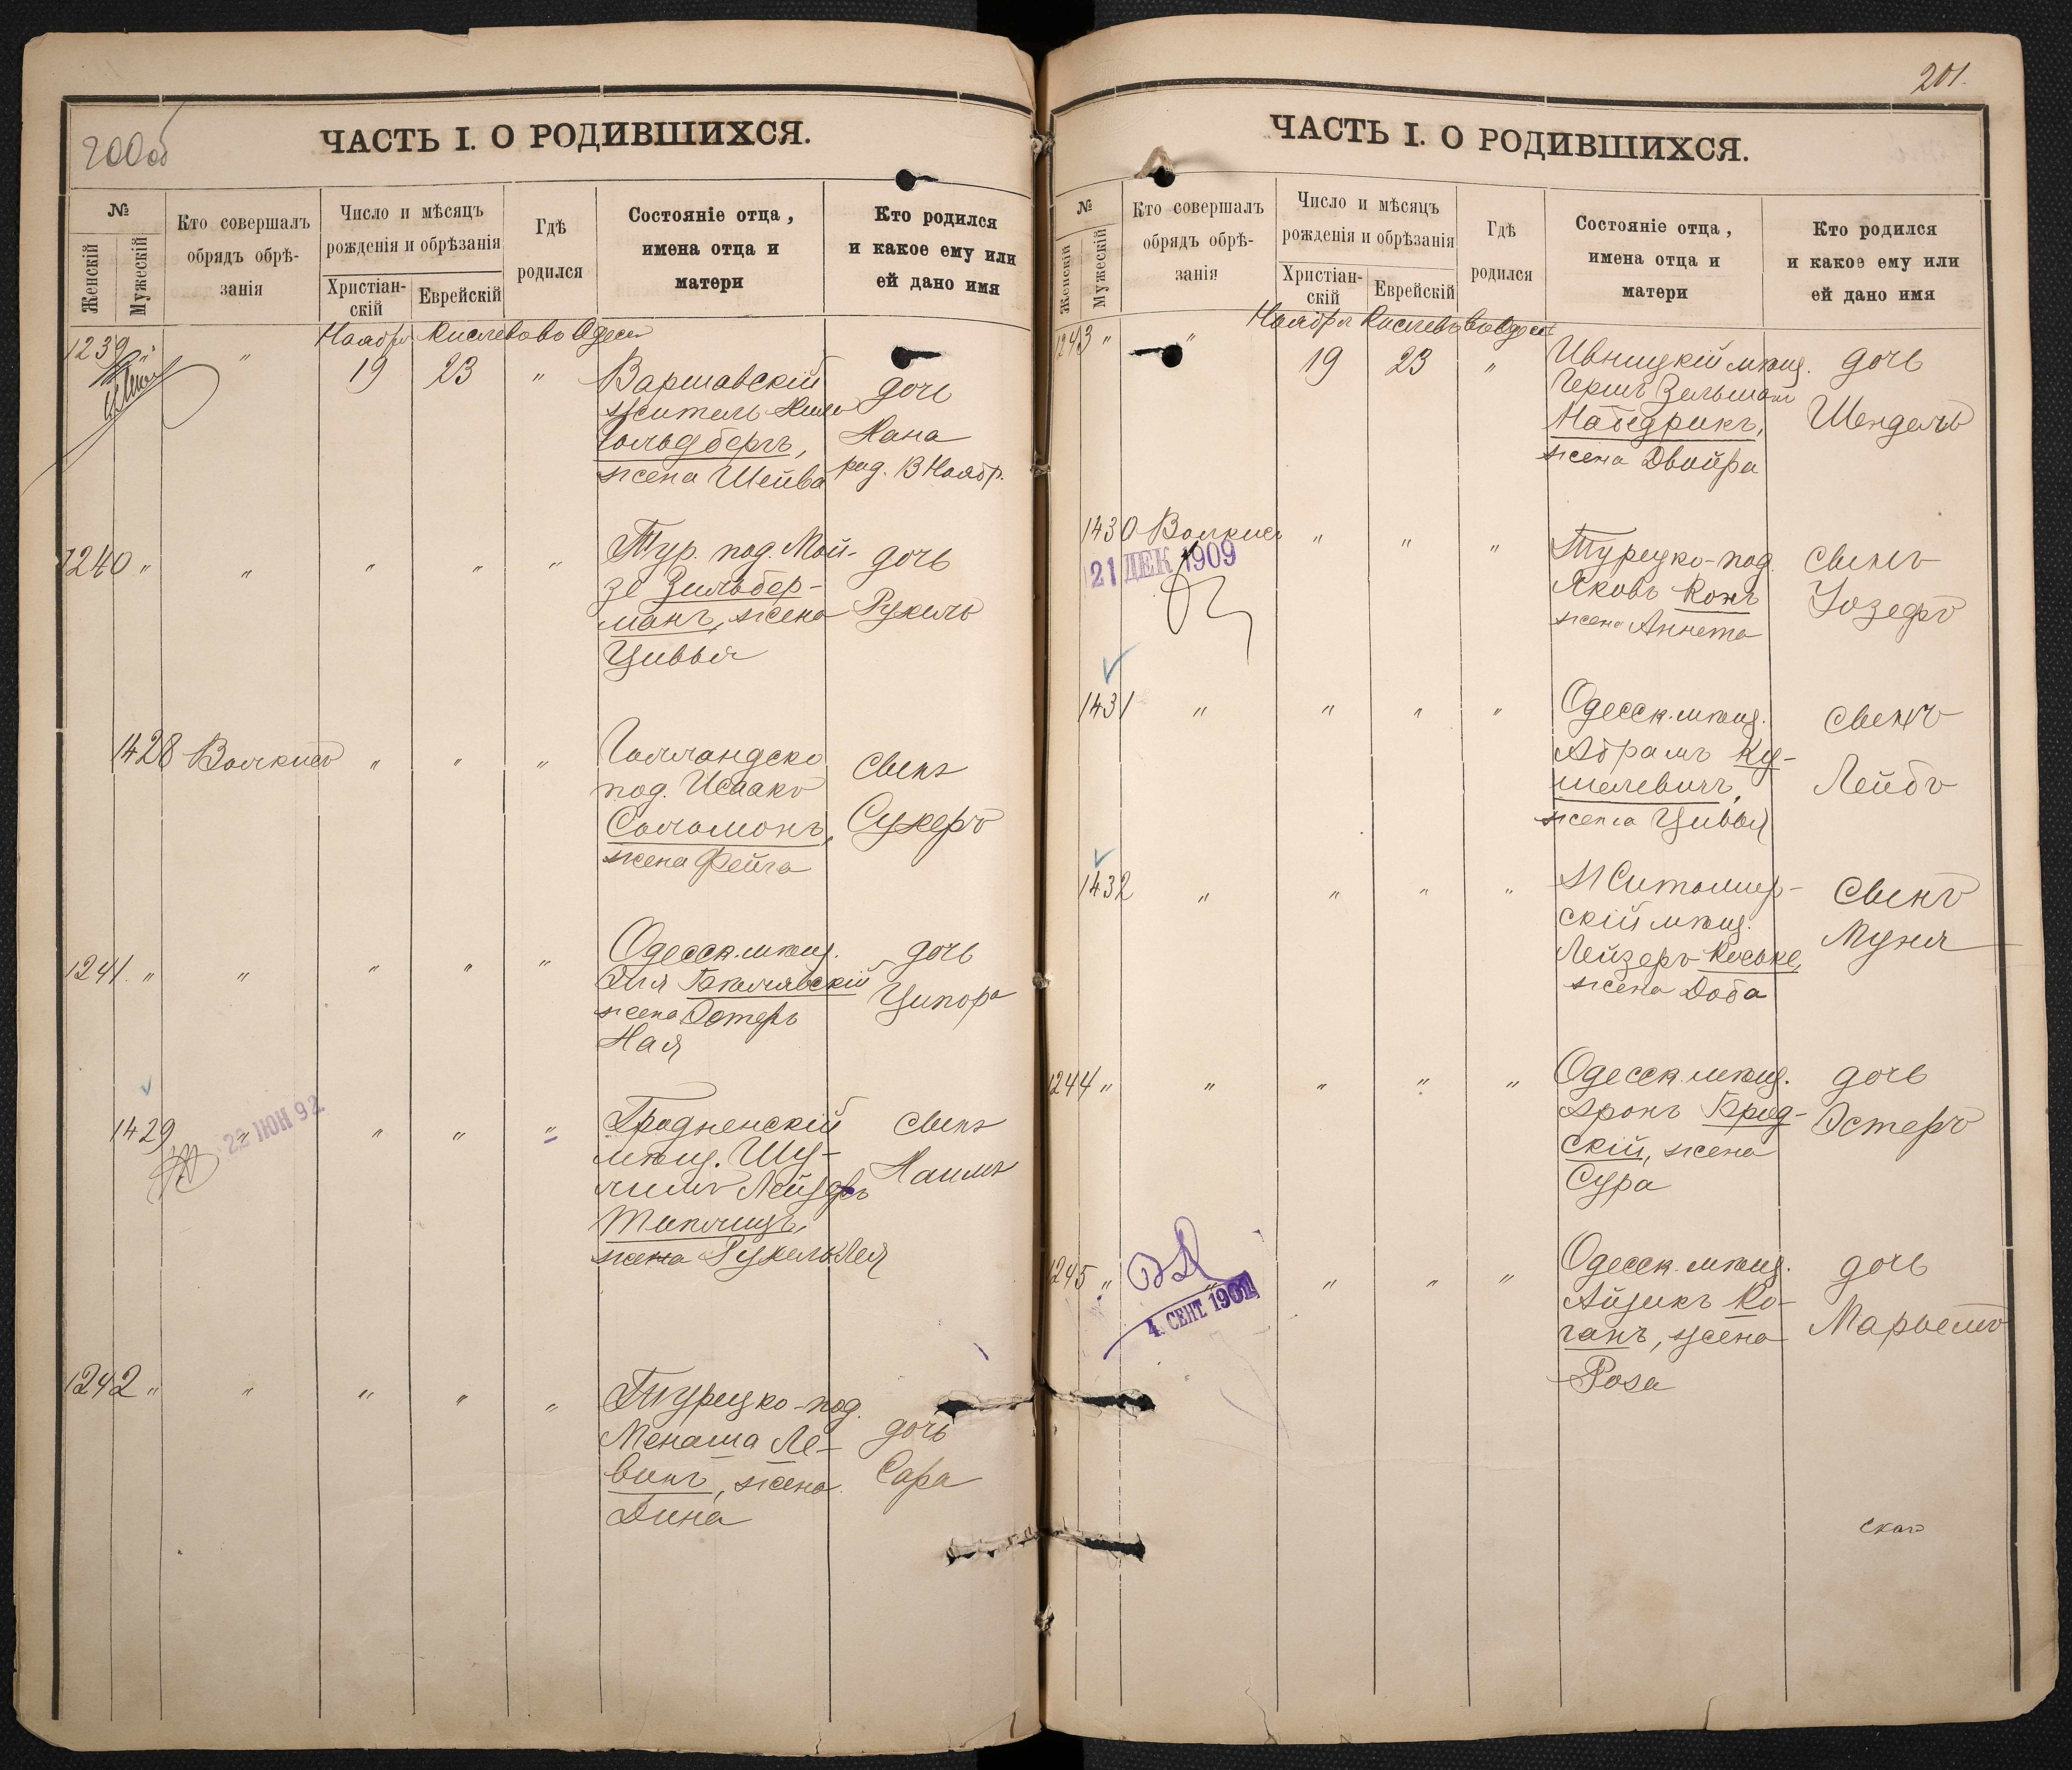 200об
ЧАСТЬ I. О РОДИВШИХСЯ.
№
Женскій
Мужескій
Кто совершалъ
обрядъ обрѣ-
занія
Число и мѣсяцъ
рожденія и обрѣзанія
Христіан-
скій
Еврейскій
Гдѣ
родился
Состояніе отца,
имена отца и
матери
Кто родился
и какое ему или
ей дано имя
Ноября Кислева во Одессѣ
1239 " " 19 23 "
Варшавскій
житель
Гольдбергъ,
жена Шейва
дочь
Хана
род. 13 Ноябр.
1240 " " " " "
Тур. под. Мой-
зе Зильбер-
манъ, жена
Цивья
дочь
Рухель
1428 Волкисъ " " "
Голландско
под. Исаакъ
Соломонъ,
жена Фейга
сынъ
Сухеръ
1241. " " " " "
Одесск. мѣщ.
Эля
жена Эстеръ
Хая
дочь
Ципора
1429 " " " "
22 ІЮН 92
Гродненскій
мѣщ. Шу-
лимъ Лейзеръ
жена Рухель Лея
сынъ
Наимъ
1242 " " " " "
Турецко-под.
Менаша Ле-
винъ, жена
Дина
дочь
Сара
201.
ЧАСТЬ I. О РОДИВШИХСЯ.
№
Женскій
Мужескій
Кто совершалъ
обрядъ обрѣ-
занія
Число и мѣсяцъ
рожденія и обрѣзанія
Христіан-
скій
Еврейскій
Гдѣ
родился
Состояніе отца,
имена отца и
матери
Кто родился
и какое ему или
ей дано имя
Ноября Кислевъ во Одессѣ
1243 " " 19 23 "
Ивницкій мѣщ.
Гершъ Зельман
Набедрикъ,
жена Двойра
дочь
Шендель
1430 Волкисъ " " "
21 ДЕК 1909
Турецко-под.
ЯковъКонъ
жена Аннета
сынъ
Іозефъ
1431 " " " "
Одесск. мѣщ.
Абрамъ Ку-
шелевичъ,
жена Цивья
сынъ
Лейбъ
1432 " " " "
Житомир-
скій мѣщ.
Лейзеръ
жена Доба
сынъ
Муня
1244 " " " " "
Одесск. мѣщ.
Аронъ Брод-
скій, жена
Сура
дочь
Эстеръ
1245 " " " " "
4 СЕНТ 1901
Одесск. мѣщ.
Айзикъ Ко-
ганъ, жена
Роза
дочь
Марьемъ